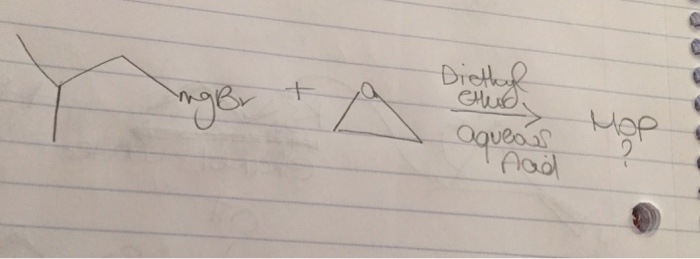 mgBr + a
Diethyl
Ether,
aqueous
Acid
MOP
?